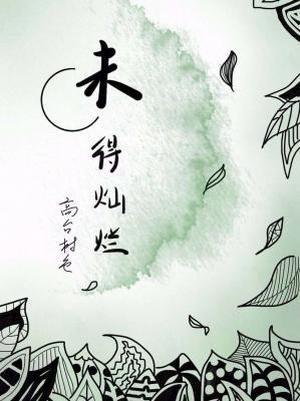 未得灿烂
高台村色